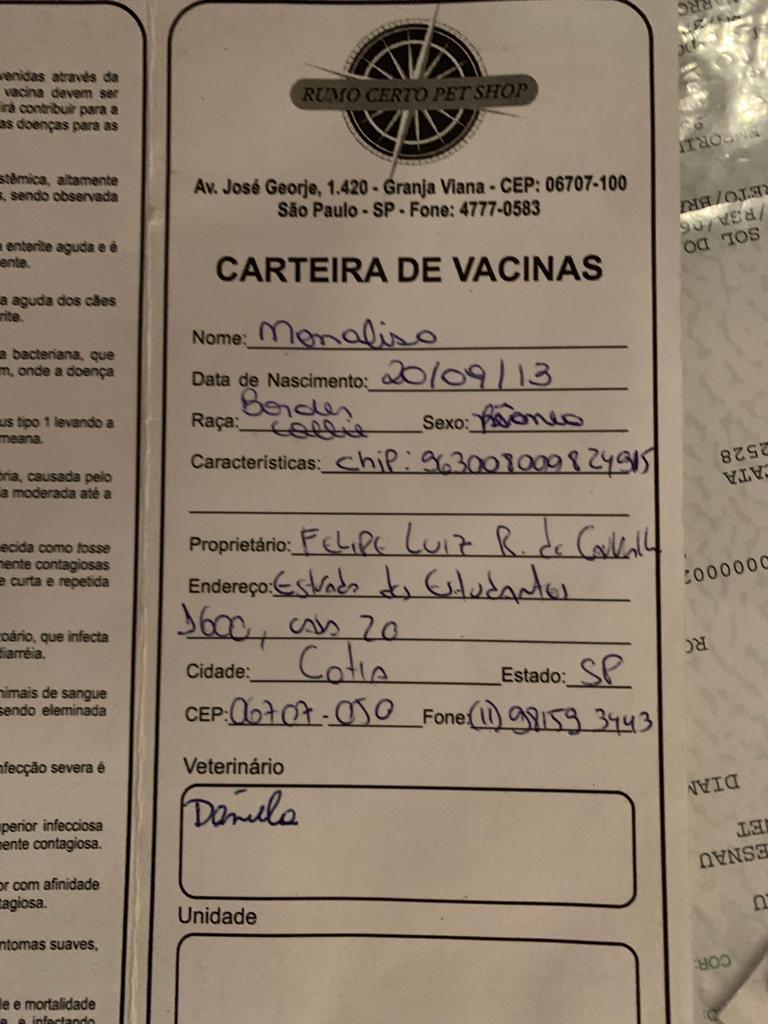 venidas através da
vacina devem ser
irá contribuir para a
as doenças para as
stêmica, altamente
s, sendo observada
enterite aguda e é
ente.
a aguda dos cães
rite.
a bacteriana, que
m, onde a doença
us tipo 1 levando a
meana.
ória, causada pelo
a moderada até a
ecida como tosse
ente contagiosas
e curta e repetida
oário, que infecta
diarréia.
nimais de sangue
sendo eleminada
nfecção severa é
uperior infecciosa
ente contagiosa.
or com afinidade
tagiosa.
ntomas suaves,
e e mortalidade
RUMO CERTO PET SHOP
Av. José Georje, 1.420 - Granja Viana - CEP: 06707-100
São Paulo - SP - Fone: 4777-0583
CARTEIRA DE VACINAS
Nome: Monaliso
Data de Nascimento: 20/09/13
Raça: Border Collie Sexo:
Características: chip: 963008009824915
Proprietário: Felipe Luiz R. de Carvalh
Endereço: Estrada dos Estudantes
1600, casa 20
Cidade: Cotia Estado: SP
CEP: 06707-050 Fone: (11) 98159 3443
Veterinário
Daniela
Unidade
SOL DO
2528
CATA
DIAM
COR: